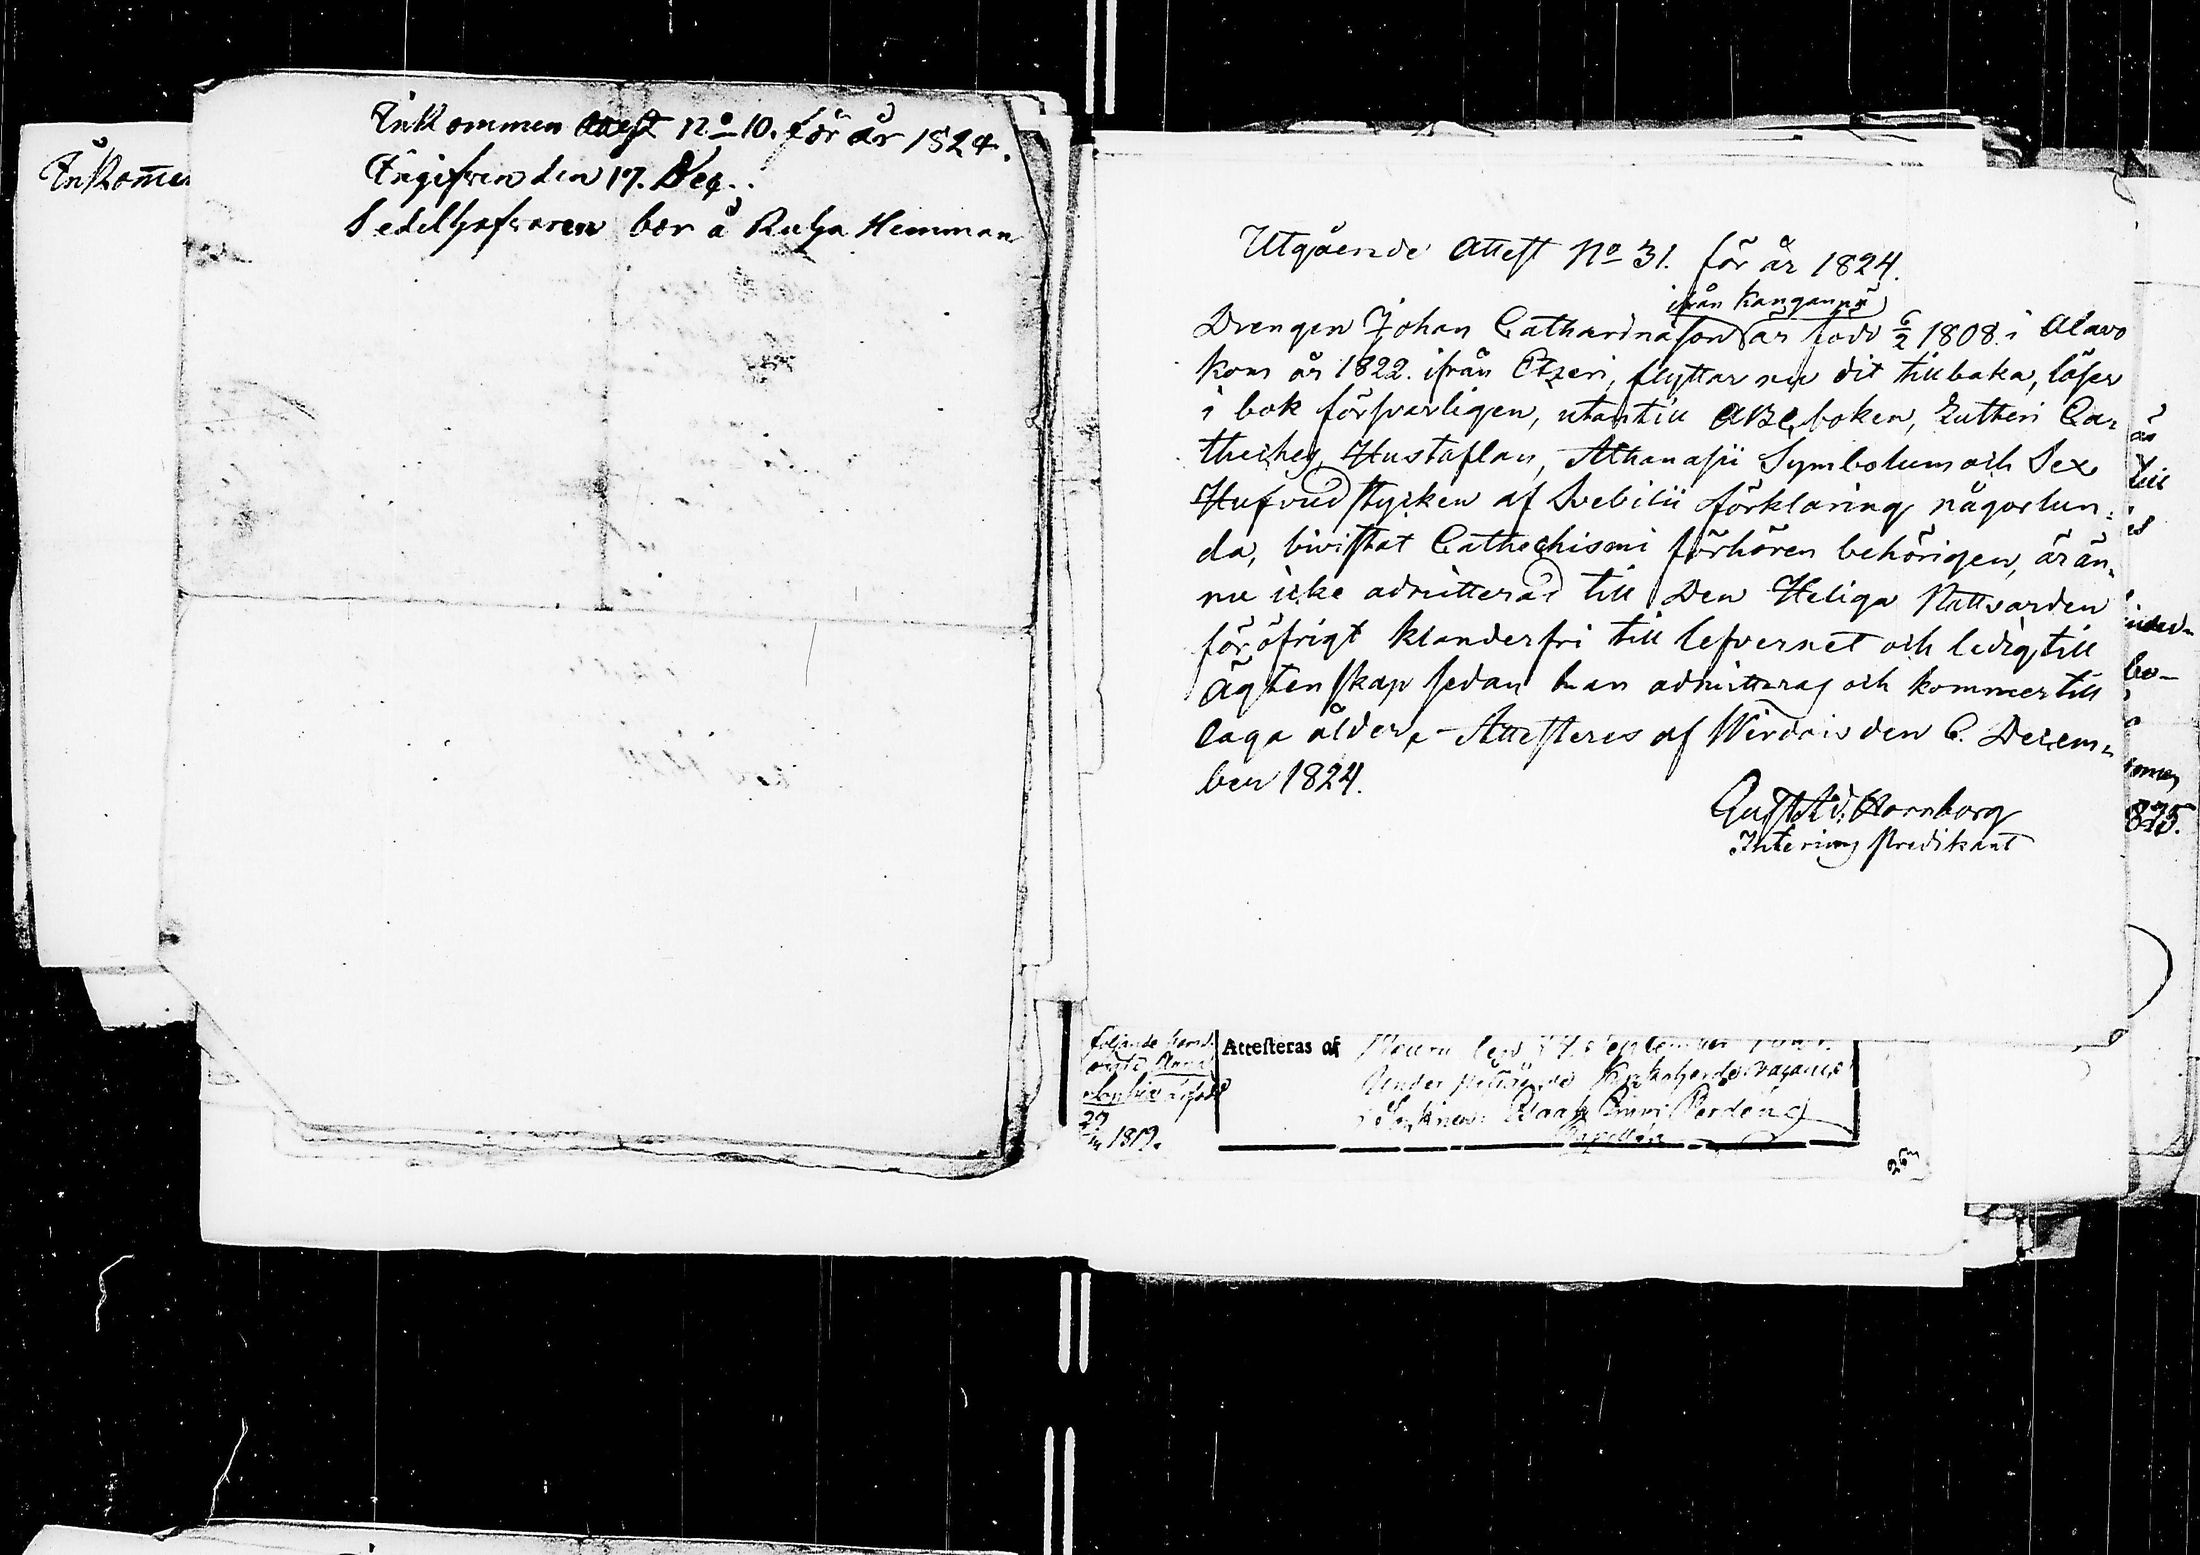 Inkommen Attest No 10. för år 1824.
Ingifven den 17. Dec.
Sedelhafvaren bor å Ruha Hemman
Inkomme
Utgående Attest No 31. för år 1824.
ifrån Kangan
Drengen Johan Catharinason är född 6/2 1808. i Alavo
kom år 1822. ifrån Etzeri, flyttar nu dit tillbaka, läser
i bok försvarligen, utantill ABC boken, Lutheri Ca-
theches, Hustaflan, Athanasii Symbolum och Sex
Hufvudstycken af Svebilii förklaring någorlun-
da, bivistat Cathechismi förhören behörigen, är än-
nu icke admitterad till Den Heliga Nattvarden
för öfrigt klanderfri till lefvernet och ledig till
Ägtenskap sedan han admitteras och kommer till
laga ålder, Attesteres af Wirdois den 6. Decem-
ber 1824.
Gust. Ad. Hornborg
Interims Predikant
är
till
bo-
825.
följande
Anna
27
1819.
Attesteras af
September
Under
Capellan